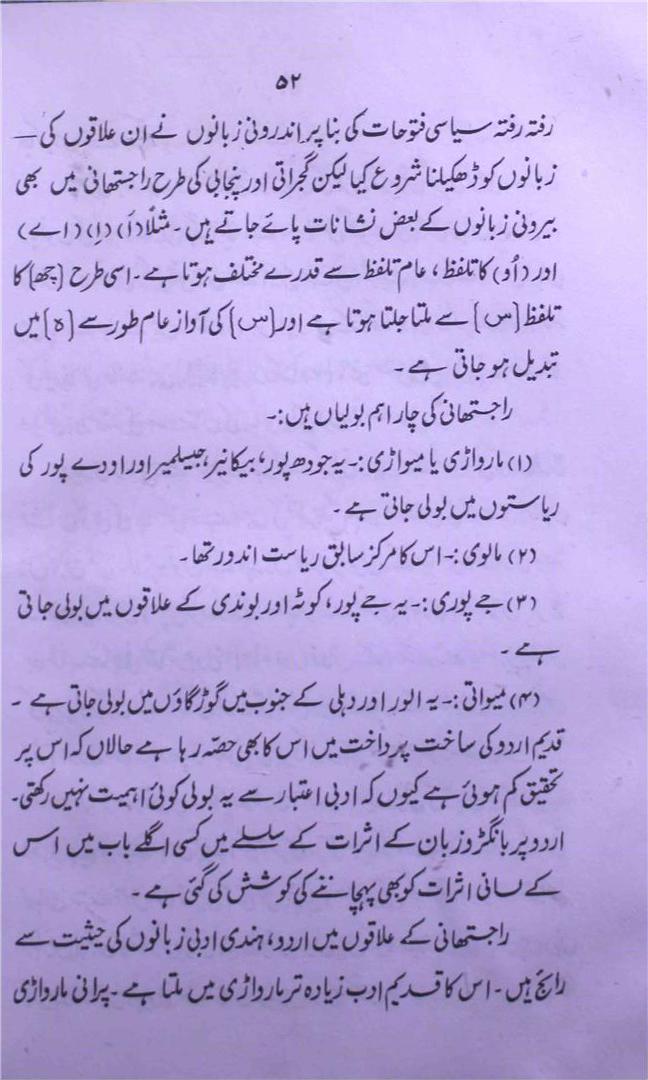 ۵۲
رفتہ رفتہ سیاسی فتوحات کی بنا پر اندرونی زبانوں نے ان علاقوں کی —
زبانوں کو ڈھکیلنا شروع کیا لیکن گجراتی اور پنجابی کی طرح راجستھانی میں بھی
بیرونی زبانوں کے بعض نشانات پائے جاتے ہیں۔ مثلاً (اَ) (اِ) (اے)
اور (اُو) کا تلفظ، عام تلفظ سے قدرے مختلف ہوتا ہے۔ اسی طرح [چھ] کا
تلفظ [س] سے ملتا جلتا ہوتا ہے اور [س] کی آواز عام طور سے [ہ] میں
تبدیل ہو جاتی ہے۔
راجستھانی کی چار اہم بولیاں ہیں:۔
(۱) مارواڑی یا میواڑی:۔ یہ جودھ پور، بیکانیر، جیسلمیر اور اودے پور کی
ریاستوں میں بولی جاتی ہے۔
(۲) مالوی:۔ اس کا مرکز سابق ریاست اندور تھا۔
(۳) جے پوری:۔ یہ جے پور، کوٹہ اور بوندی کے علاقوں میں بولی جاتی
ہے۔
(۴) میواتی:۔ یہ الور اور دہلی کے جنوب میں گوڑگاؤں میں بولی جاتی ہے۔
قدیم اردو کی ساخت پرداخت میں اس کا بھی حصّہ رہا ہے حالاں کہ اس پر
تحقیق کم ہوئی ہے کیوں کہ ادبی اعتبار سے یہ بولی کوئی اہمیت نہیں رکھتی۔
اردو پر بانگڑو زبان کے اثرات کے سلسلے میں کسی اگلے باب میں اس
کے لسانی اثرات کو بھی پہچاننے کی کوشش کی گئی ہے۔
راجستھانی کے علاقوں میں اردو، ہندی ادبی زبانوں کی حیثیت سے
رائج ہیں۔ اس کا قدیم ادب زیادہ تر مارواڑی میں ملتا ہے۔ پرانی مارواڑی